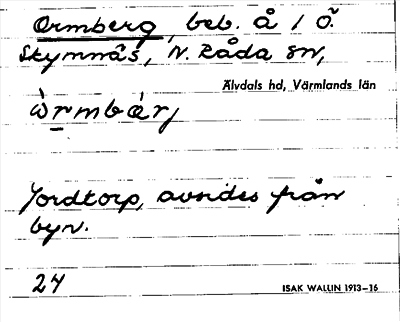 Ormberg, beb. å 1 Ö.
Skymnäs, N. Råda sn,
Älvdals hd, Värmlands län
òrmbær̀j
Jordtorp, avsides från
byn.
24
ISAK WALLIN 1913–16